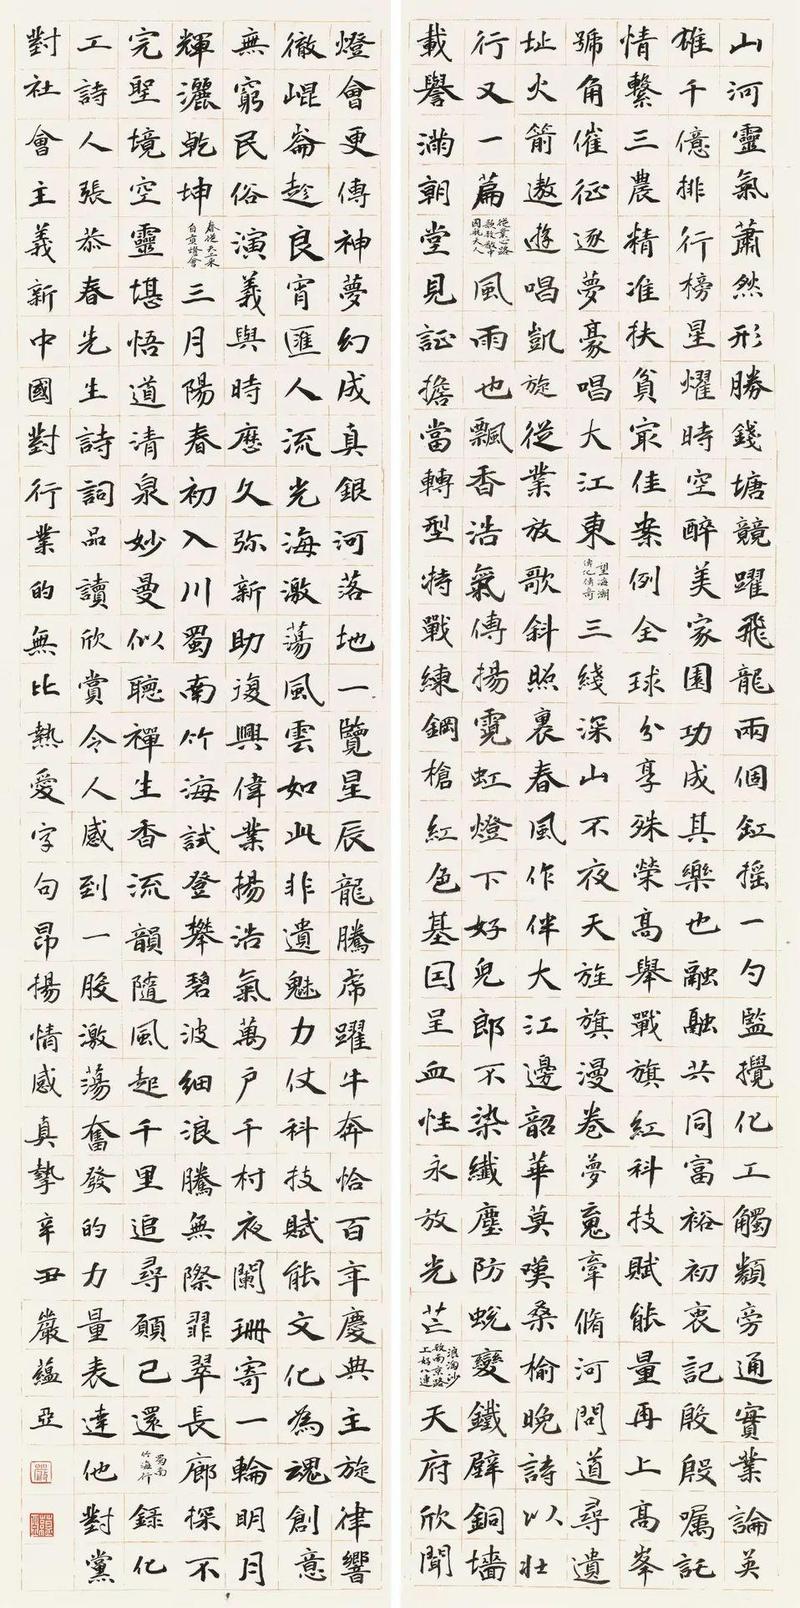 山河靈氣蕭然形勝錢塘競躍飛龍兩個缸搖一勺監攪化工觸類旁通實業論英
雄千億排行榜星耀時空醉美家園功成其樂也融融共同富裕初衷記殷殷囑託
情繫三農精准扶貧冣佳案例全球分享殊榮高舉戰旗紅科技賦能量再上高峯
號角催征逐夢豪唱大江東望海潮傳化傳奇三綫深山不夜天旌旗漫卷夢魂牽脩河問道尋遺
址火箭遨遊唱凱旋從業放歌斜照裏春風作伴大江邊韶華莫嘆桑榆晚詩以壯
行又一篇從業心路歌致敬中國航天人風雨也飄香浩氣傳揚霓虹燈下好兒郎不染纖塵防蛻變鐵壁銅墻
載譽滿朝堂見証擔當轉型特戰練鋼槍紅色基因呈血性永放光芒浪淘沙致南京路上好八連天府欣聞
燈會更傳神夢幻成真銀河落地一覽星辰龍騰虎躍牛奔恰百年慶典主旋律響
徹崐崙趁良宵匯人流光海激蕩風雲如此非遺魅力仗科技賦能文化為魂創意
無窮民俗演義與時歷久弥新助復興偉業揚浩氣萬户千村夜闌珊寄一輪明月
輝灑乾坤春從天上來自貢燈會三月陽春初入川蜀南竹海試登攀碧波細浪騰無際翡翠長廊探不
完聖境空靈堪悟道清泉妙曼似聽禪生香流韻隨風起千里追尋願已還蜀南竹海行錄化
工詩人張恭春先生詩詞品讀欣賞令人感到一股激蕩奮發的力量表達他對黨
對社會主義新中國對行業的無比熱愛字句昂揚情感真摯辛丑嚴蘊亞